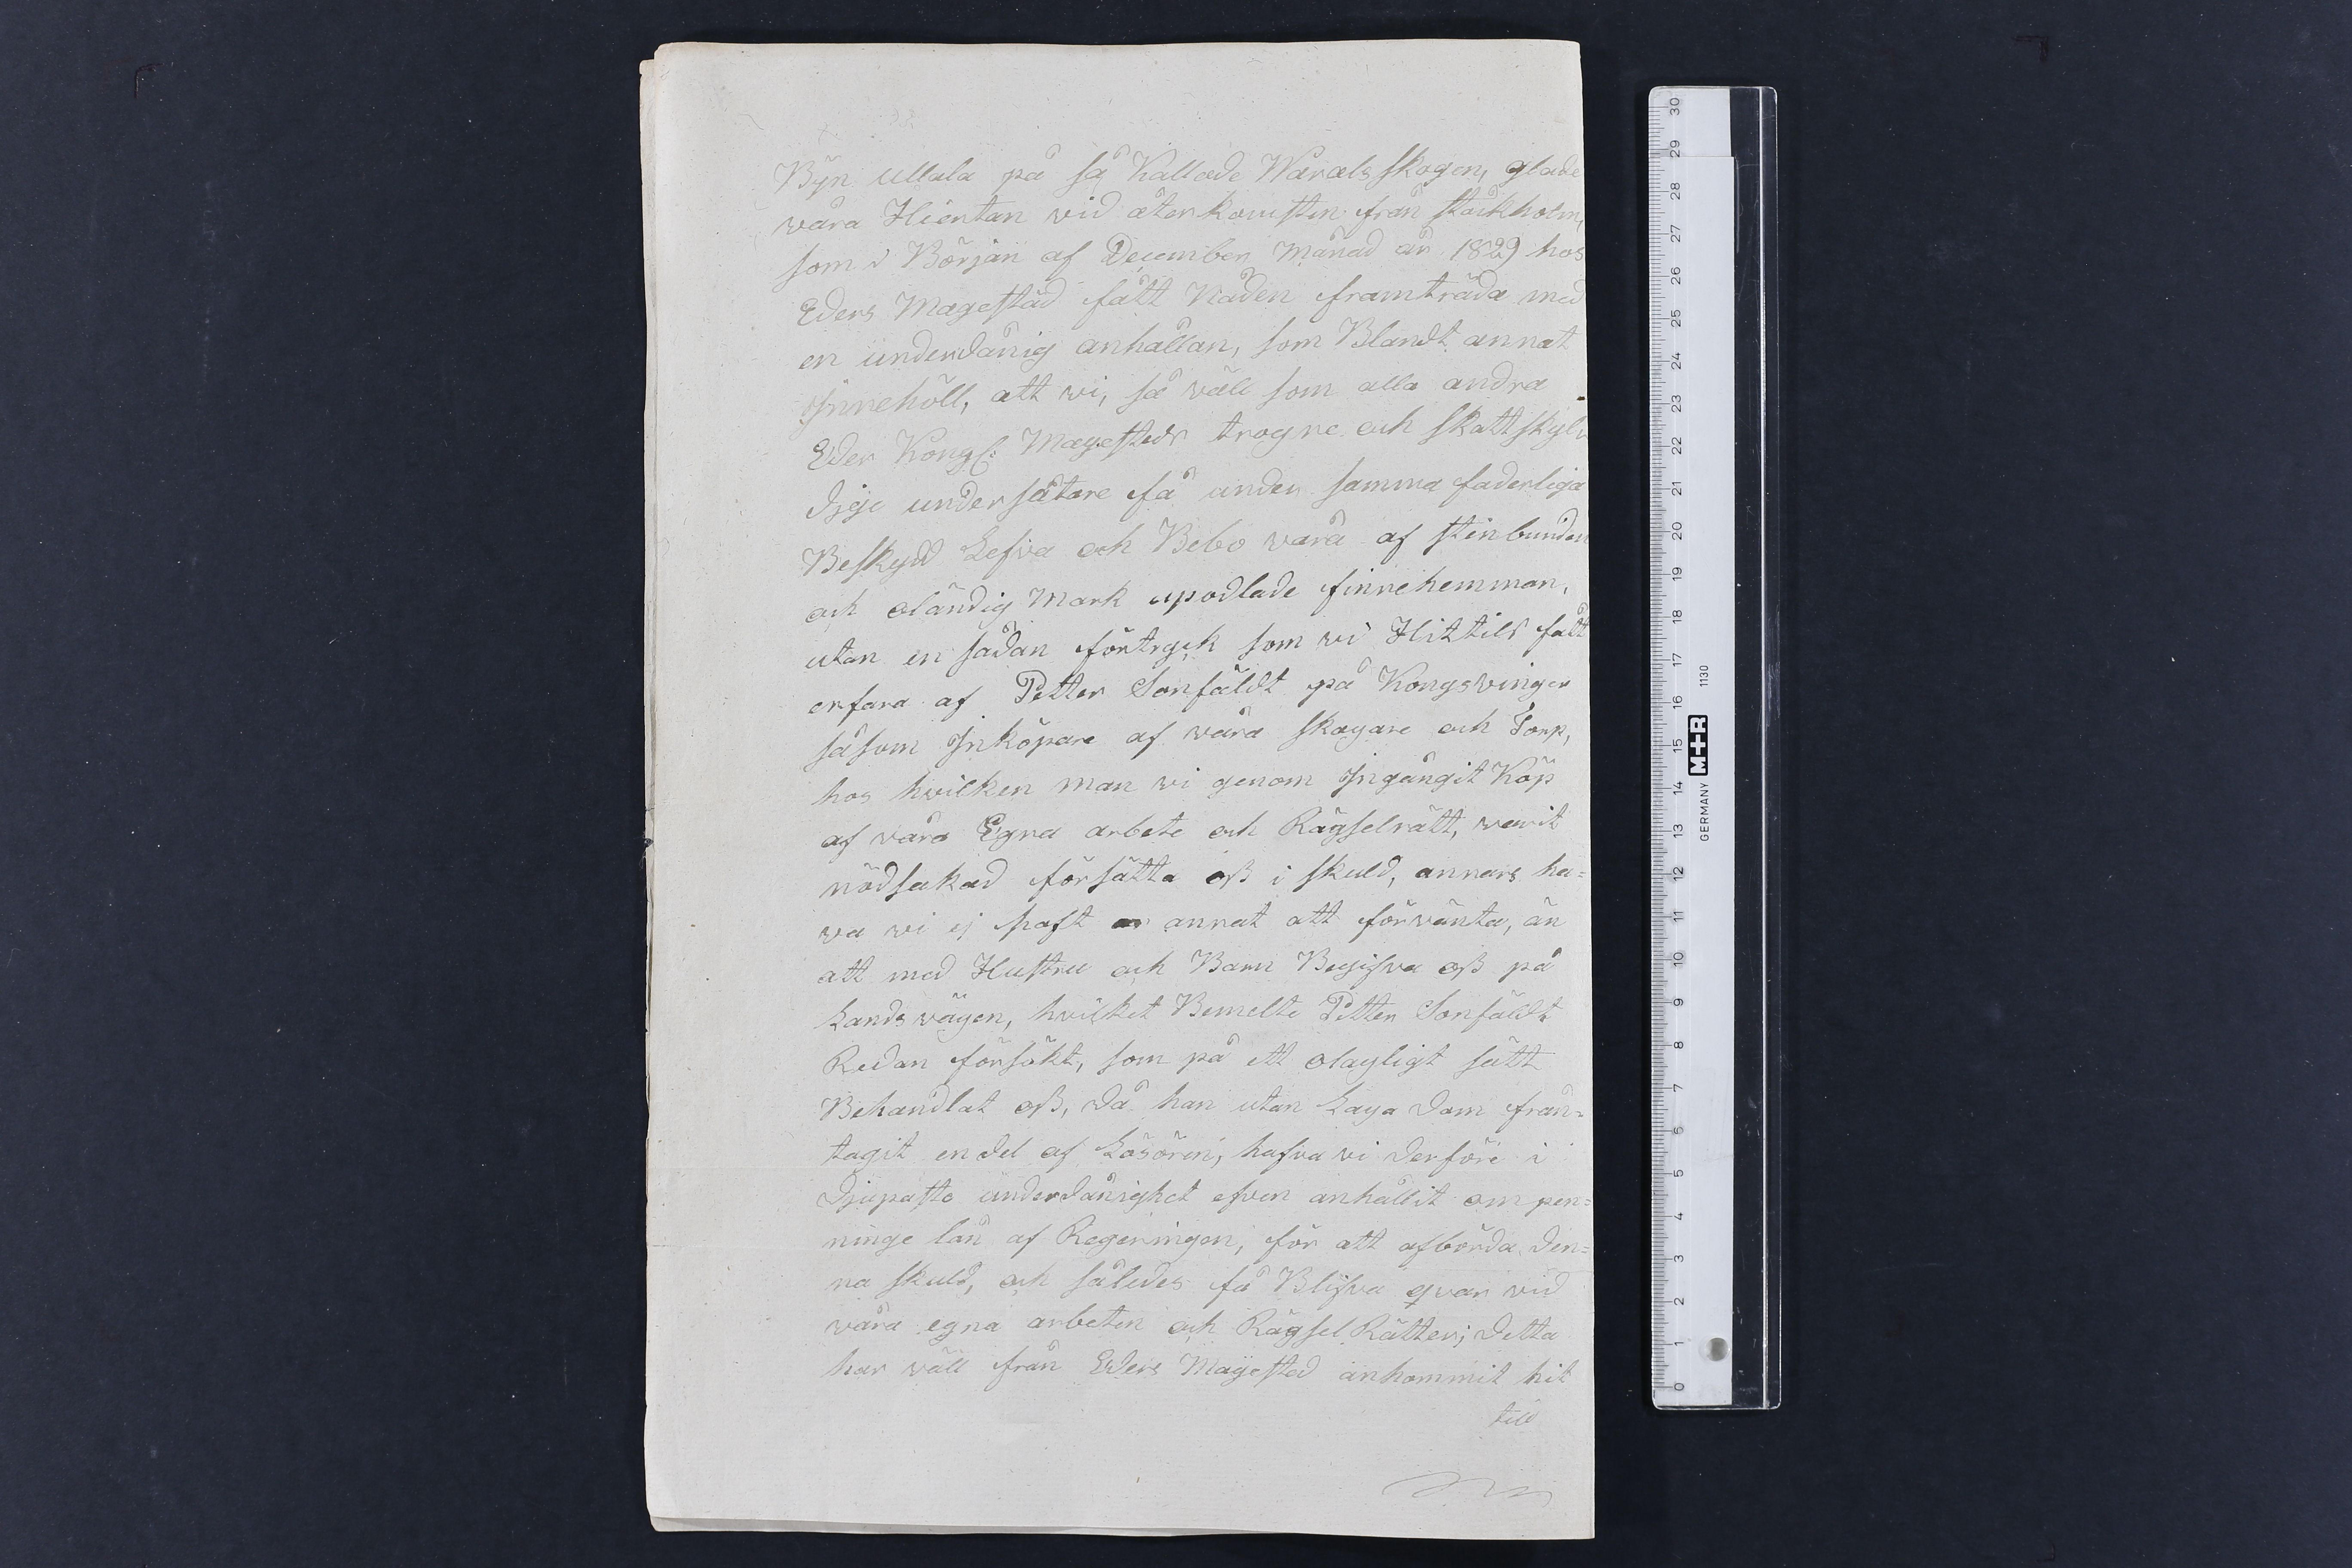 Byn Ullula på så Kallade Waralsskogen, glade
våra Hientan vid återkomsten från stäckholm,
som i Början af December Månad år 1829 hos
Eders Magestäd fått Nåden framträda med
en underdånig anhållan, som Blandt annat
Jnnehöll, att vi, så väll som alla andra
Eder Kongl: Mayesteds trogne och skattskyl
dige undersåtare få under samma faderliga
Beskydd Lefva och Bebo våra af stinbunden
och oländig Mark upodlade finnehemman,
utan en sådan förtryck som vi Hittils fått
erfara af Petter Sonfäldt på Kongsvinger
såsom Jnköpare af våra skogare och Torp,
hos hvilken man vi genom Jngångit Köp
af våra Egna arbete och Rägselrätt, warit
nödsakad försätta oß i skuld, annars ha=
va vi ej haft annat att förvänta, än
att med Hustru och Barn Begifva oß på
Landsvägen, hvilket Bemelte Petter Sonfäldt
Redan försökt, som på ett olagligt sätt
Behandlat oß, då han utan Laga dom från=
tagit en del af Lösören, hafva vi derföre i
djupasto underdånighet efven anhållit om pen=
ninge lån af Regeringen, för att afbörda den=
na skuld, och således få Blifva qvar vid
våra egna arbeten och Rägsel Rätter; detta
har väll från Eders Mayestad ankommit hit
till